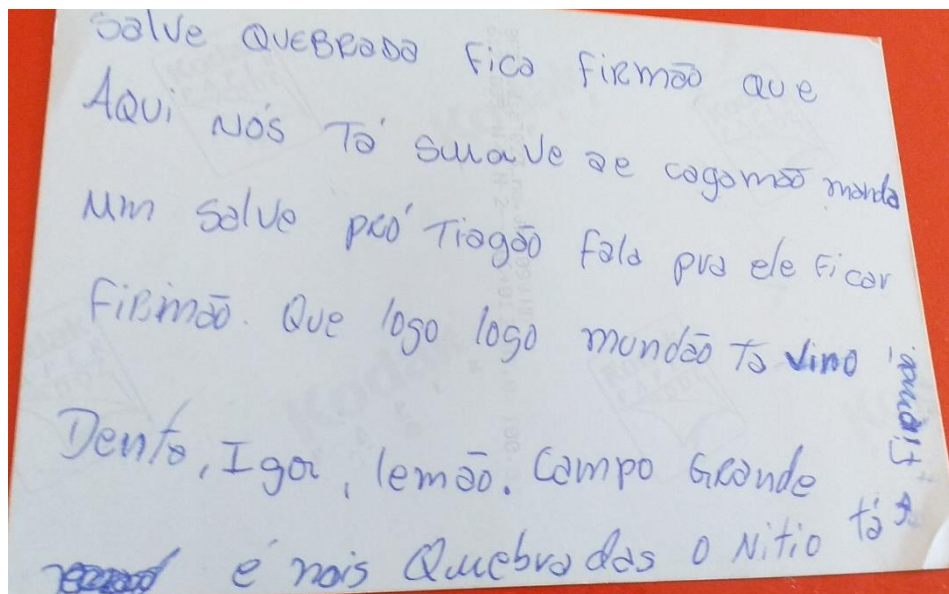 Salve QUEBRADA Fica FIRMÃO QUE
AQUi NÓS Tá Suave ae cagamão manda
um Salve pró Tiagão Fala pra ele Ficar
FiRmão. Que logo logo mundão Tá vino
Dento, Igor, lemão. Campo GRande
é nois Quebradas o Nitio tá
Firmão